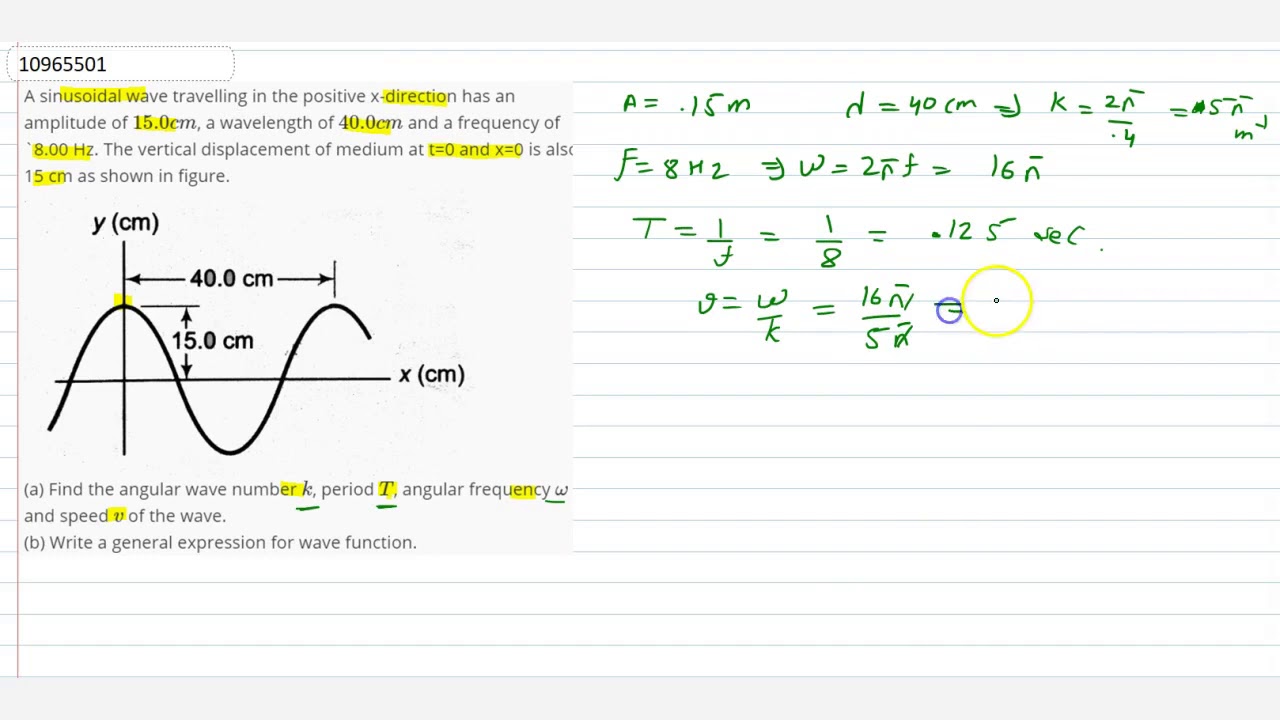 10965501
A sinusoidal wave travelling in the positive x-direction has an
amplitude of 15.0cm, a wavelength of 40.0cm and a frequency of
`8.00 Hz. The vertical displacement of medium at t=0 and x=0 is also
15 cm as shown in figure.
y (cm)
40.0 cm
15.0 cm
x (cm)
(a) Find the angular wave number k, period T, angular frequency ω
and speed v of the wave.
(b) Write a general expression for wave function.
A = .15 m λ = 40 cm ⇒ k = 2π/.4 = 5π m⁻¹
f = 8 Hz ⇒ ω = 2πf = 16π
T = 1/f = 1/8 = .125 sec.
v = ω/k = 16π/5π =